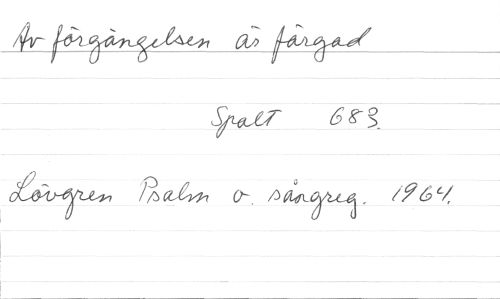 Av förgängelsen är färgad
Spalt 683.
Lövgren Psalm o. sångreg. 1964.